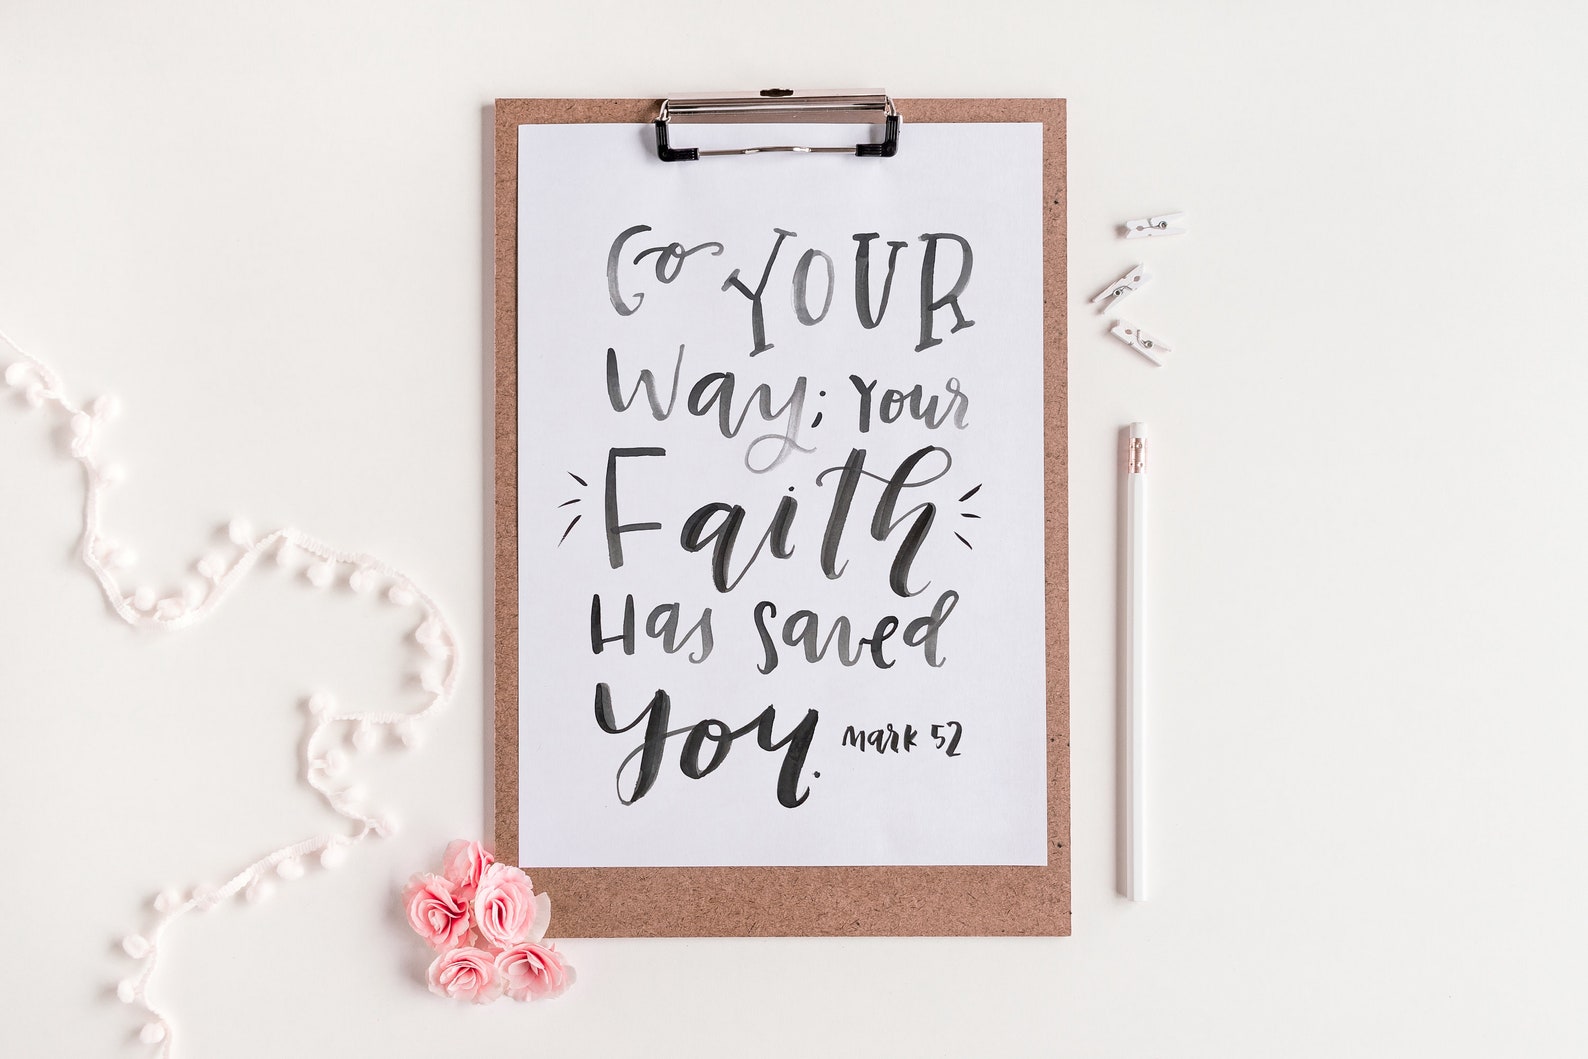 Go YOUR
Way; Your
Faith
Has Saved
You. Mark 52